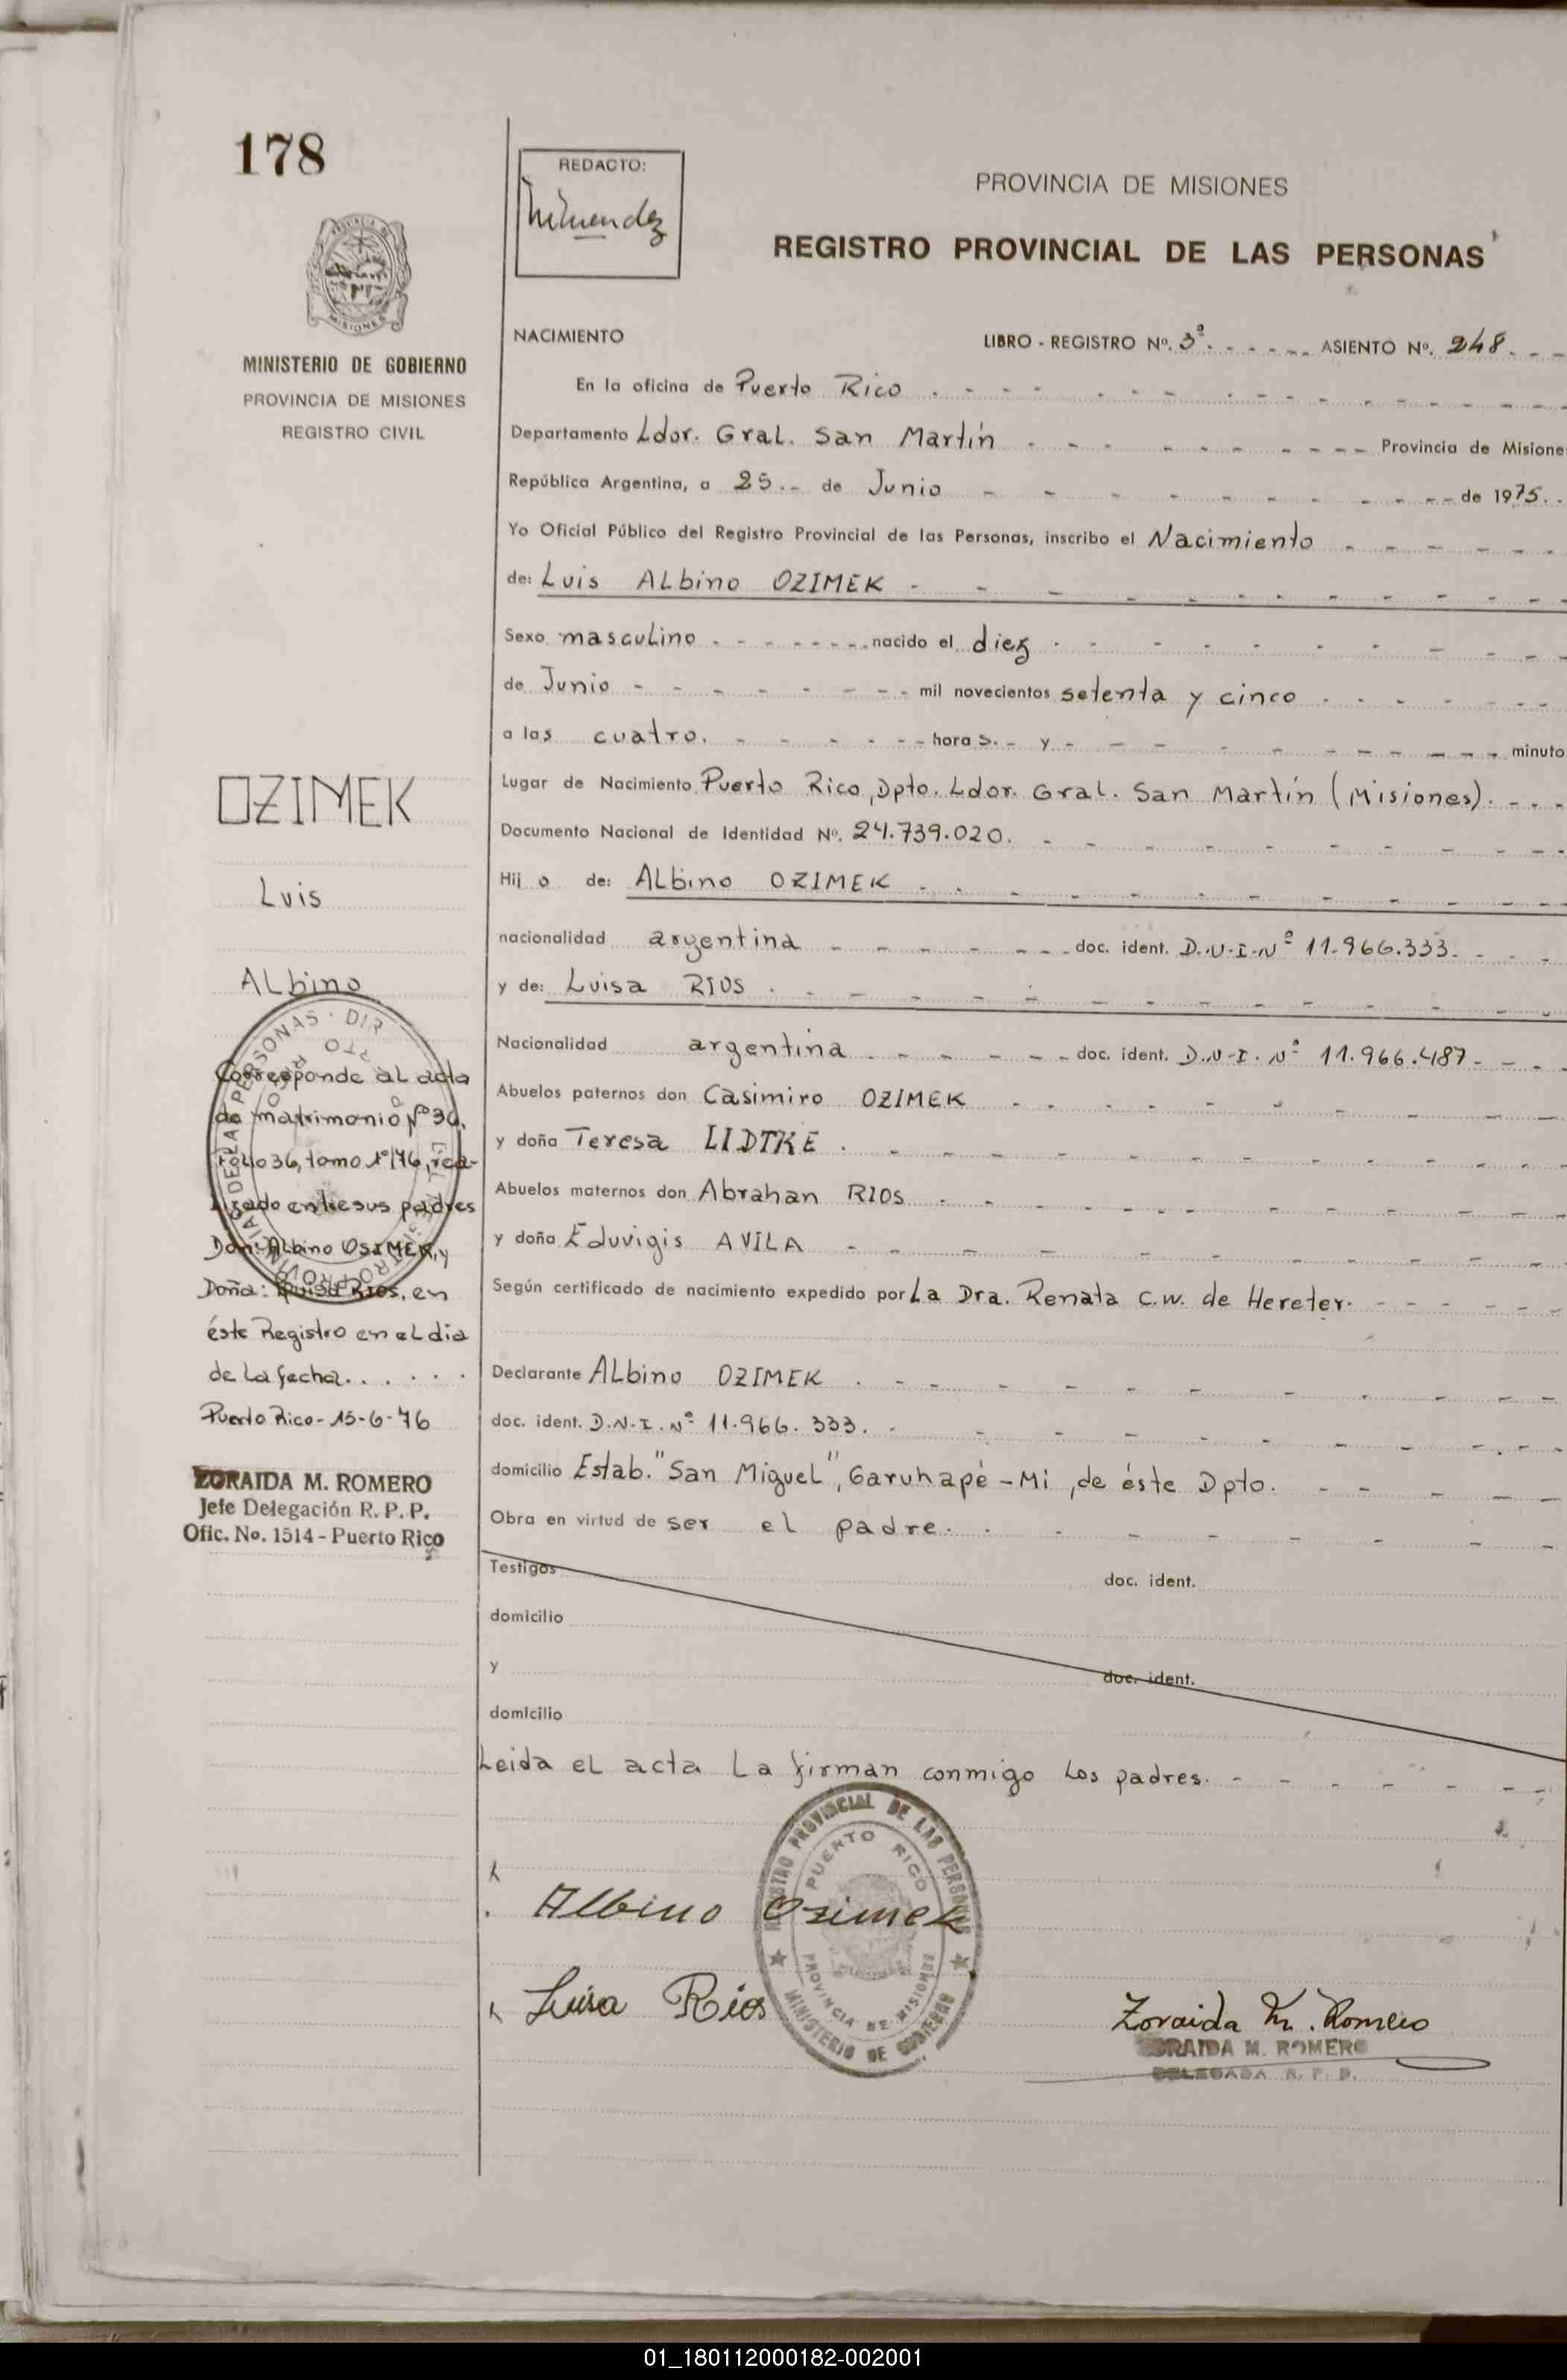 178
REDACTO:
PROVINCIA DE MISIONES
REGISTRO PROVINCIAL DE LAS PERSONAS
MISIONES
MINISTERIO DE GOBIERNO
PROVINCIA DE MISIONES
REGISTRO CIVIL
NACIMIENTO LIBRO - REGISTRO Nº. 3º. ASIENTO Nº. 248.
En la oficina de Puerto Rico
Departamento Ldor. Gral. San Martín Provincia de Misione
República Argentina, a 25 de Junio de 1975.
Yo Oficial Público del Registro Provincial de las Personas, inscribo el Nacimiento
de: Luis Albino OZIMEK
Sexo masculino nacido el diez
de Junio mil novecientos setenta y cinco
a las cuatro. horas. y minuto
Lugar de Nacimiento Puerto Rico, Dpto. Ldor. Gral. San Martín (Misiones).
Documento Nacional de Identidad Nº. 24.739.020.
Hijo de: Albino OZIMEK
nacionalidad argentina doc. ident. D.N.I.Nº 11.966.333.
y de: Luisa RIOS
Nacionalidad argentina doc. ident. D.N.I. Nº 11.966.487
Abuelos paternos don Casimiro OZIMEK
y doña Teresa LIDTKE
Abuelos maternos don Abrahan RIOS
y doña Eduvigis AVILA
Según certificado de nacimiento expedido por La Dra. Renata C.W. de Hereter.
Declarante Albino OZIMEK
doc. ident. D.N.I. Nº 11.966.333.
domicilio Estab. "San Miguel", Garuhapé-Mi, de éste Dpto.
Obra en virtud de ser el padre.
Testigos doc. ident.
domicilio
y doc. ident.
domicilio
Leida el acta La firman conmigo los padres.
Albino Ozimek
Luisa Rios
Zoraida M. Romero
ZORAIDA M. ROMERO
DELEGADA R. P. P.
REGISTRO PROVINCIAL DE LAS PERSONAS
PUERTO RICO
PROVINCIA DE MISIONES
MINISTERIO DE GOBIERNO
OZIMEK
Luis
Albino
Corresponde al acta
de matrimonio Nº 36,
Folio 36, tomo 1º/76, rea-
lizado entre sus padres
Don: Albino OSIMEK, y
Doña: Luisa RIOS, en
éste Registro en el dia
de La fecha.
Puerto Rico - 15-6-76
ZORAIDA M. ROMERO
Jefe Delegación R. P. P.
Ofic. No. 1514 - Puerto Rico
01_180112000182-002001